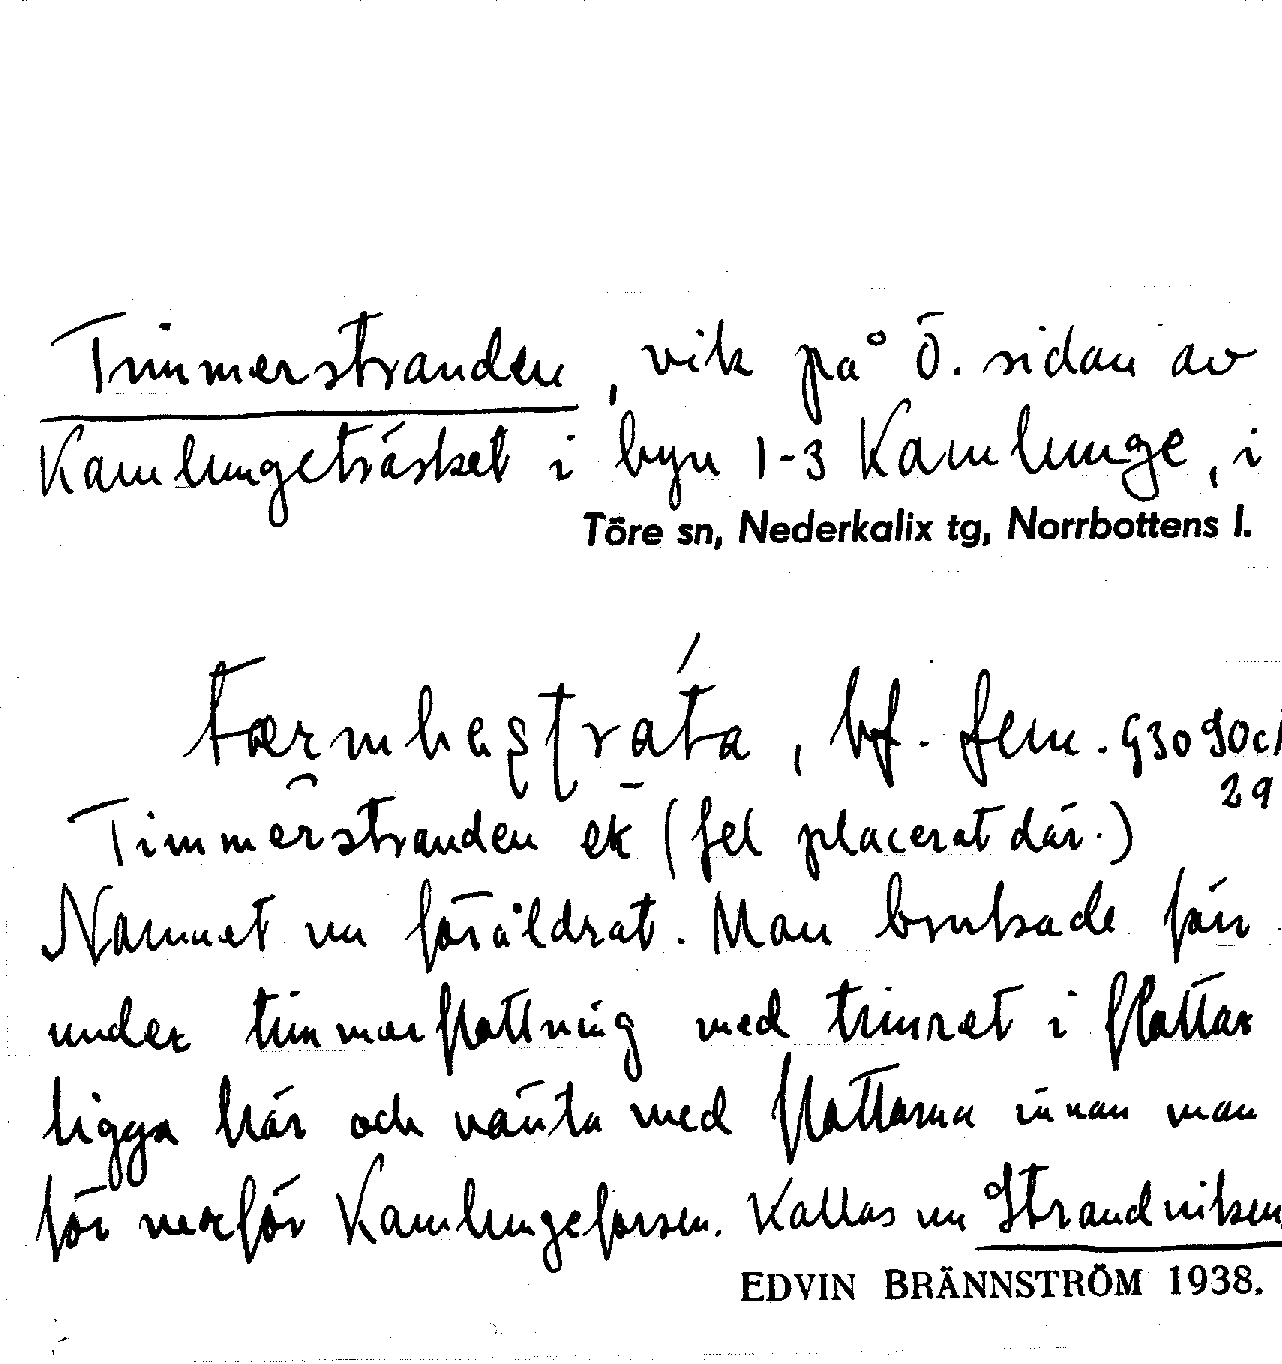 Timmerstranden, vik på Ö. sidan av
Kamlungeträsket i byn 1-3 Kamlunge, i
Töre sn, Nederkalix tg, Norrbottens l.
bf. fem.
29
Timmerstranden ek (fel placerat där.)
Namnet nu föråldrat. Man brukade förr
under timmerflottning med timret i flottar
ligga här och vänta med flottarna innan man
för nerför Kamlungeforsen. Kallas nu Strandviken
EDVIN BRÄNNSTRÖM 1938.